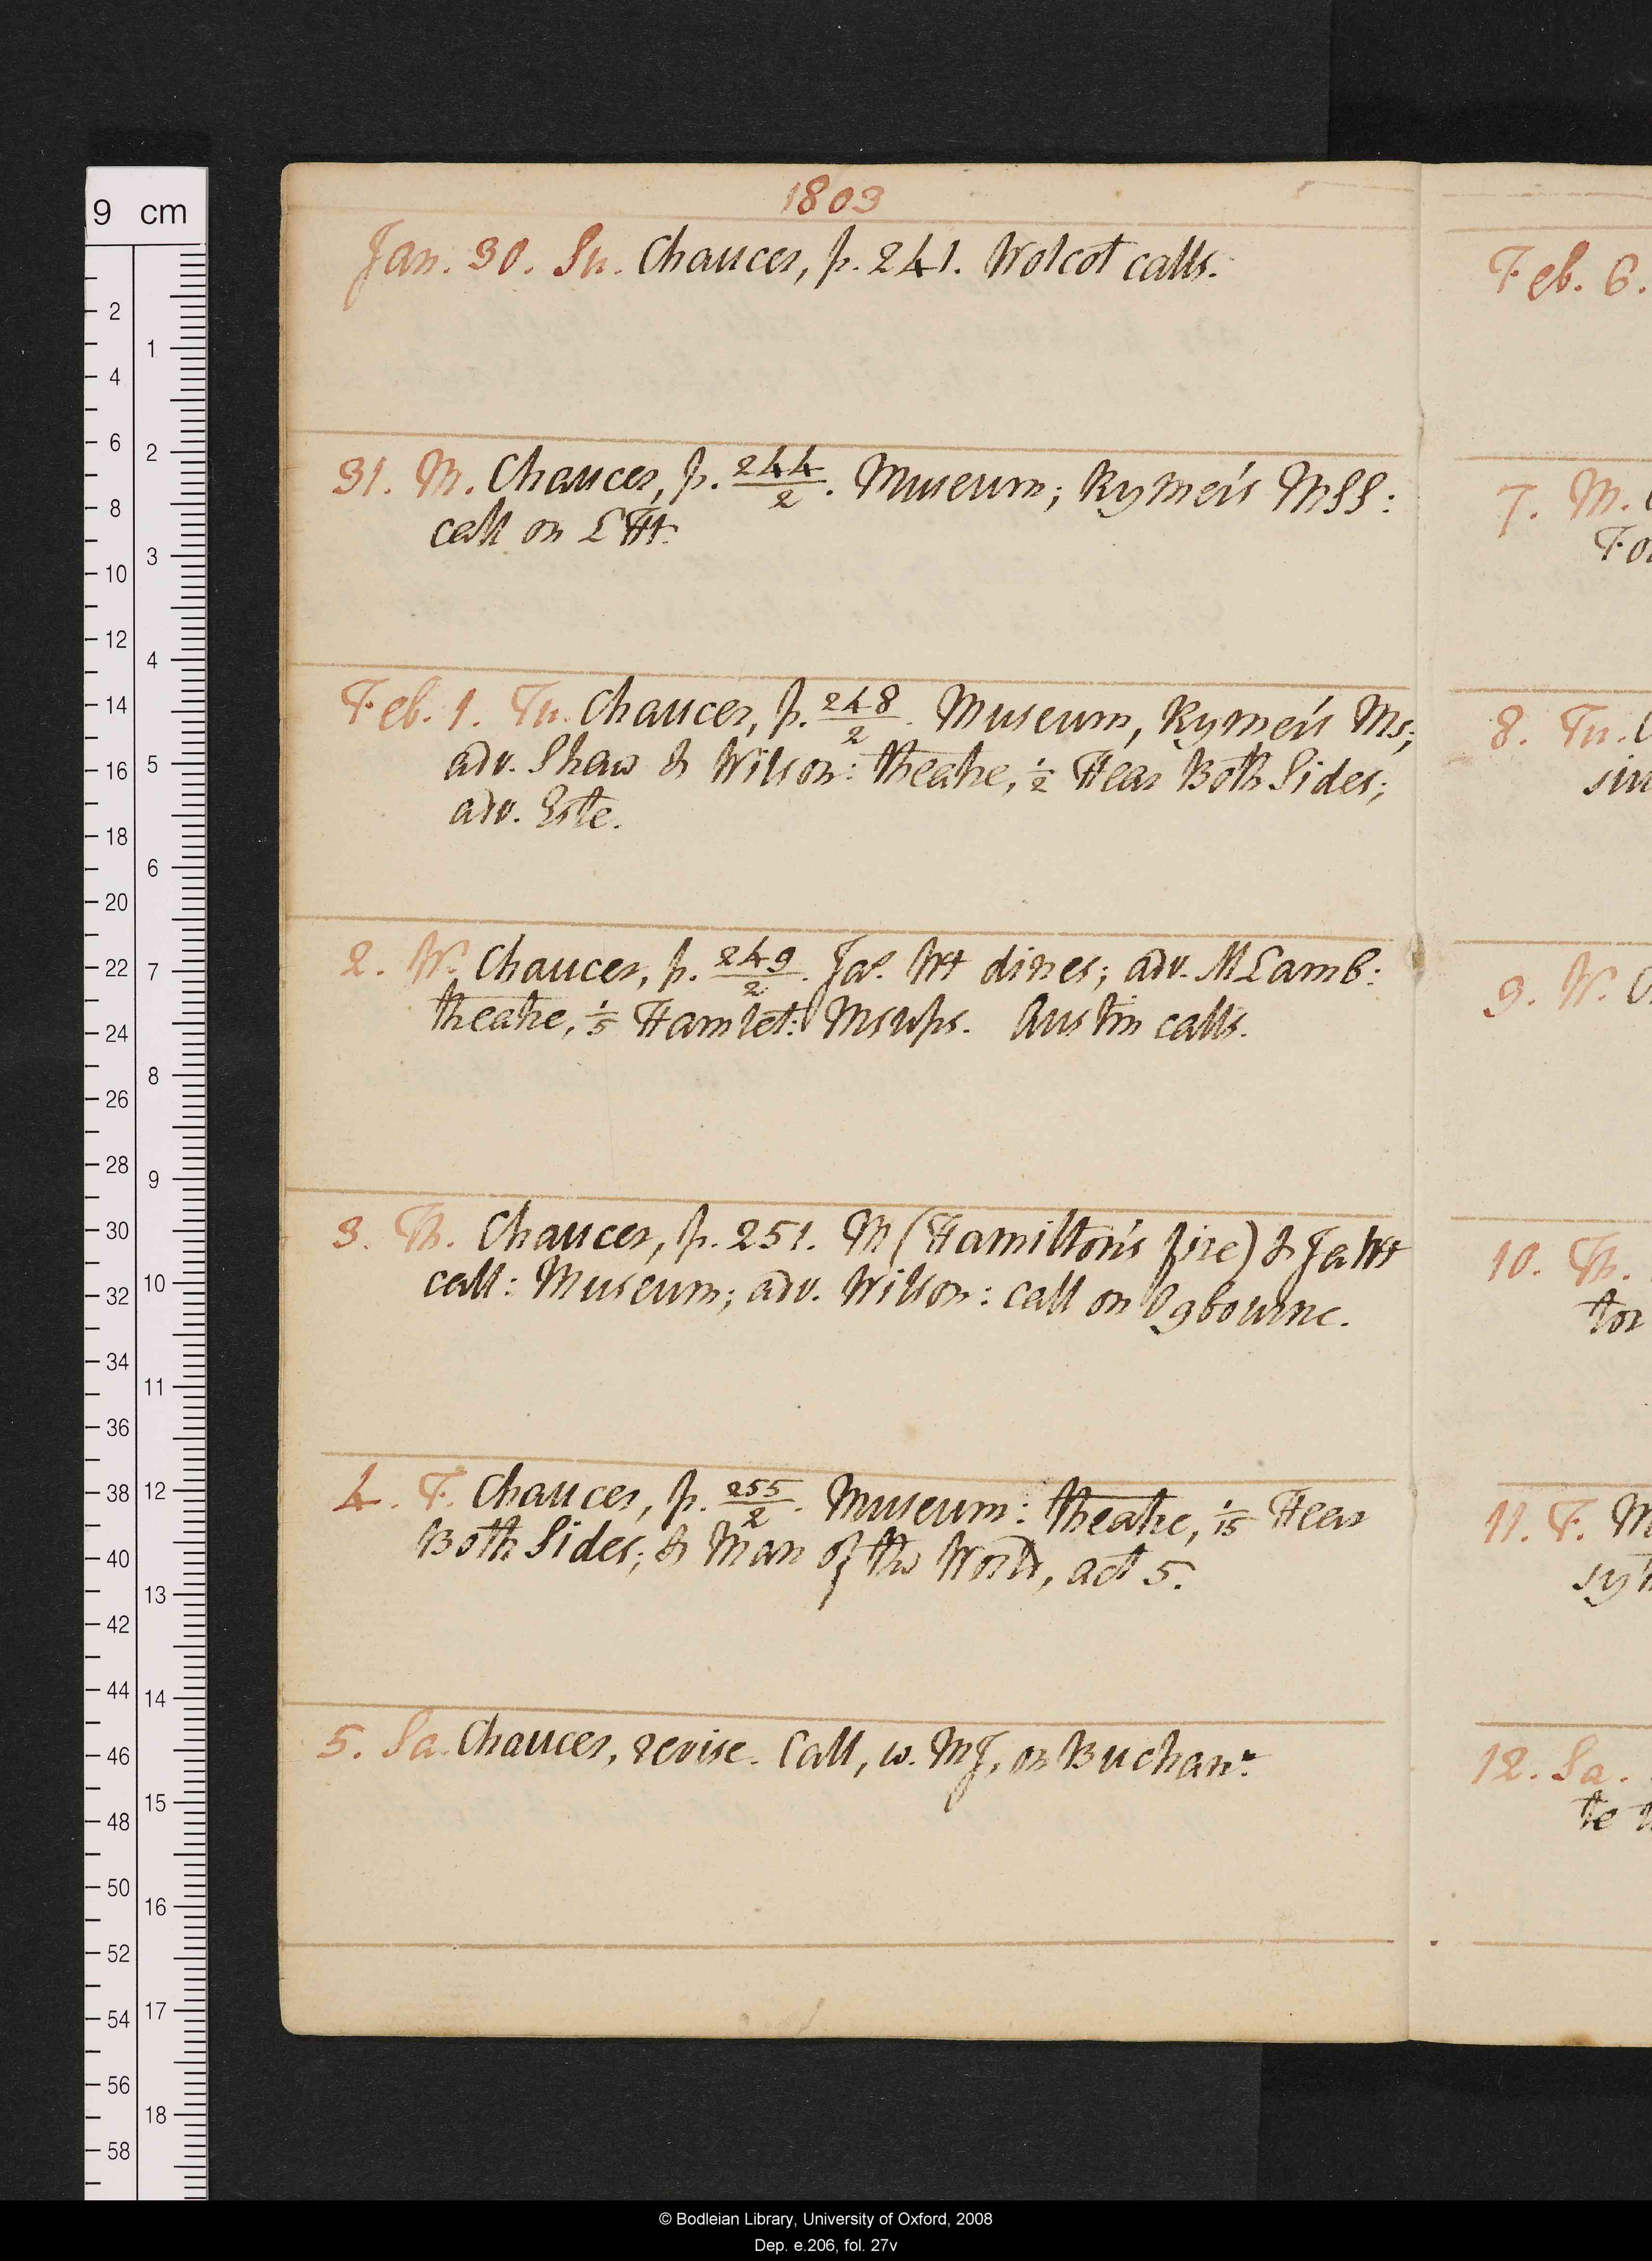 9 cm
1803
Jan. 30. Su. Chaucer, p. 241. Wolcot calls.
31. M. Chaucer, p. 244/2. Museum; Rymer's MSS:
call on LHt.
Feb. 1. Tu. Chaucer, p. 248/2. Museum, Rymer's Ms;
adv. Shaw & Wilson: theatre, 1/2 Hear Both Sides;
adv. Este.
2. W. Chaucer, p. 249/2. Jas. Wt dines; adv. M Lamb:
theatre, 1/5 Hamlet: Msups. Austin calls.
3. Th. Chaucer, p. 251. M (Hamilton's fire) & Ja Wt
call: Museum; adv. Wilson: call on Ogbourne.
4. F. Chaucer, p. 255/2. Museum: theatre, 1/15 Hear
Both Sides; & Man of the World, act 5.
5. Sa. Chaucer, revise. Call, w. MJ, on Buchanⁿ.
Feb. 6.
7. M.
8. Tu.
9. W.
10. Th.
11. F.
12. Sa.
© Bodleian Library, University of Oxford, 2008
Dep. e.206, fol. 27v